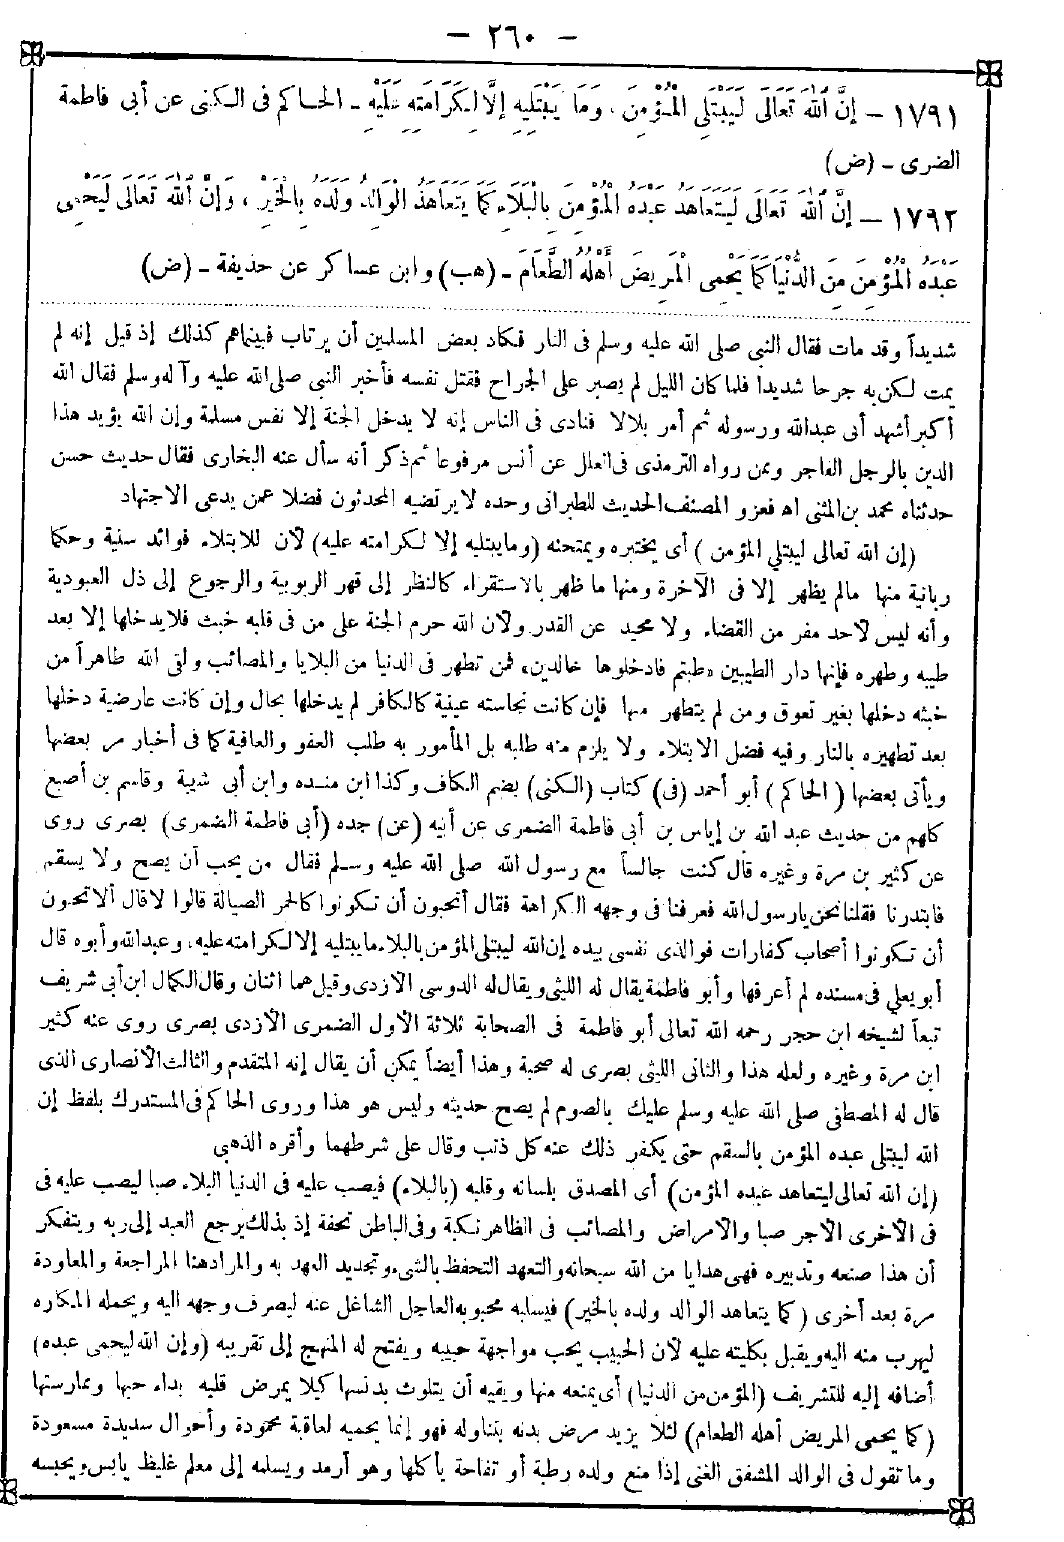 - ٢٦٠ -
١٧٩١ - إِنَّ اللّٰهَ تَعَالَى لَيَبْتَلِى الْمُؤْمِنَ ، وَمَا يَبْتَلِيهِ إِلَّا لِكَرَامَتِهِ عَلَيْهِ - الحاكم فى الكنى عن أبى فاطمة
الضرى - (ض)
١٧٩٢ - إِنَّ اللّٰهَ تَعَالَى لَيَتَعَاهَدُ عَبْدَهُ الْمُؤْمِنَ بِالْبَلَاءِ كَمَا يَتَعَاهَدُ الْوَالِدُ وَلَدَهُ بِالْخَيْرِ ، وَإِنَّ اللّٰهَ تَعَالَى لَيَحْمِى
عَبْدَهُ الْمُؤْمِنَ مِنَ الدُّنْيَا كَمَا يَحْمِى الْمَرِيضَ أَهْلُهُ الطَّعَامَ - (هب) وابن عساكر عن حذيفة - (ض)
شديداً وقد مات فقال النبى صلى الله عليه وسلم فى النار فكاد بعض المسلمين أن يرتاب فبينماهم كذلك إذ قيل إنه لم
يمت لكن به جرحا شديدا فلما كان الليل لم يصبر على الجراح فقتل نفسه فأخبر النبى صلى الله عليه وآله وسلم فقال الله
أكبر أشهد أنى عبد الله ورسوله ثم أمر بلالا فنادى فى الناس إنه لا يدخل الجنة إلا نفس مسلمة وإن الله يؤيد هذا
الدين بالرجل الفاجر ومن رواه الترمذى فى العلل عن أنس مرفوعا ثم ذكر أنه سأل عنه البخارى فقال حديث حسن
حدثناه محمد بن المثنى اه فعزو المصنف الحديث للطبرانى وحده لا يرتضيه المحدثون فضلا عمن يدعى الاجتهاد
(إن الله تعالى ليبتلي المؤمن) أى يختبره ويمتحنه (وما يبتليه إلا لكرامته عليه) لأن للابتلاء فوائد سنية وحكما
ربانية منها مالم يظهر إلا فى الآخرة ومنها ما ظهر بالاستقراء كالنظر إلى قهر الربوبية والرجوع إلى ذل العبودية
وأنه ليس لأحد مفر من القضاء ولا محيد عن القدر ولأن الله حرم الجنة على من فى قلبه خبث فلا يدخلها إلا بعد
طيبه وطهره فإنها دار الطيبين «طبتم فادخلوها خالدين» فمن تطهر فى الدنيا من البلايا والمصائب ولقى الله طاهراً من
خبثه دخلها بغير تعوق ومن لم يتطهر منها فإن كانت نجاسته عينية كالكافر لم يدخلها بحال وإن كانت عارضية دخلها
بعد تطهيره بالنار وفيه فضل الابتلاء ولا يلزم منه طلبه بل المأمور به طلب العفو والعافية كما فى أخبار مر بعضها
ويأتى بعضها (الحاكم) أبو أحمد (فى) كتاب (الكنى) بضم الكاف وكذا ابن منده وابن أبى شيبة وقاسم بن أصبغ
كلهم من حديث عبد الله بن إياس بن أبى فاطمة الضمرى عن أبيه (عن) جده (أبى فاطمة الضمرى) بصرى روى
عن كثير بن مرة وغيره قال كنت جالساً مع رسول الله صلى الله عليه وسلم فقال من يحب أن يصح ولا يسقم
فابتدرنا فقلنا نحن يا رسول الله فعرفنا فى وجهه الكراهة فقال أتحبون أن تكونوا كالحمر الصيالة قالوا لا قال ألا تحبون
أن تكونوا أصحاب كفارات فوالذى نفسى بيده إن الله ليبتلى المؤمن بالبلاء ما يبتليه إلا لكرامته عليه، وعبد الله وأبوه قال
أبو يعلي فى مسنده لم أعرفها وأبو فاطمة يقال له الليثى ويقال له الدوسى الأزدى وقيل هما اثنان وقال الكمال ابن أبى شريف
تبعاً لشيخه ابن حجر رحمه الله تعالى أبو فاطمة فى الصحابة ثلاثة الأول الضمرى الأزدى بصرى روى عنه كثير
ابن مرة وغيره ولعله هذا والثانى الليثى بصرى له صحبة وهذا أيضاً يمكن أن يقال إنه المتقدم والثالث الأنصارى الذى
قال له المصطفى صلى الله عليه وسلم عليك بالصوم لم يصح حديثه وليس هو هذا وروى الحاكم فى المستدرك بلفظ إن
الله ليبتلى عبده المؤمن بالسقم حتى يكفر ذلك عنه كل ذنب وقال على شرطهما وأقره الذهبى
(إن الله تعالى ليتعاهد عبده المؤمن) أى المصدق بلسانه وقلبه (بالبلاء) فيصب عليه فى الدنيا البلاء صبا ليصب عليه فى
فى الأخرى الأجر صبا والأمراض والمصائب فى الظاهر نكبة وفى الباطن تحفة إذ بذلك يرجع العبد إلى ربه ويتفكر
أن هذا صنعه وتدبيره فهى هدايا من الله سبحانه والتعهد التحفظ بالشىء وتجديد العهد به والمراد هنا المراجعة والمعاودة
مرة بعد أخرى (كما يتعاهد الوالد ولده بالخير) فيسلبه محبوبه العاجل الشاغل عنه ليصرف وجهه اليه ويحمله المكاره
ليهرب منه اليه ويقبل بكليته عليه لأن الحبيب يحب مواجهة حبيبه ويفتح له المنهج إلى تقريبه (وإن الله ليحمى عبده)
أضافه إليه للتشريف (المؤمن من الدنيا) أى يمنعه منها ويقيه أن يتلوث بدنسها كيلا يمرض قلبه بداء حبها وممارستها
(كما يحمى المريض أهله الطعام) لئلا يزيد مرض بدنه بتناوله فهو إنما يحميه لعاقبة محمودة وأحوال سديدة مسعودة
وما تقول فى الوالد المشفق الغنى إذا منع ولده رطبة أو تفاحة يأكلها وهو أرمد ويسلمه إلى معلم غليظ يابس ويحبسه